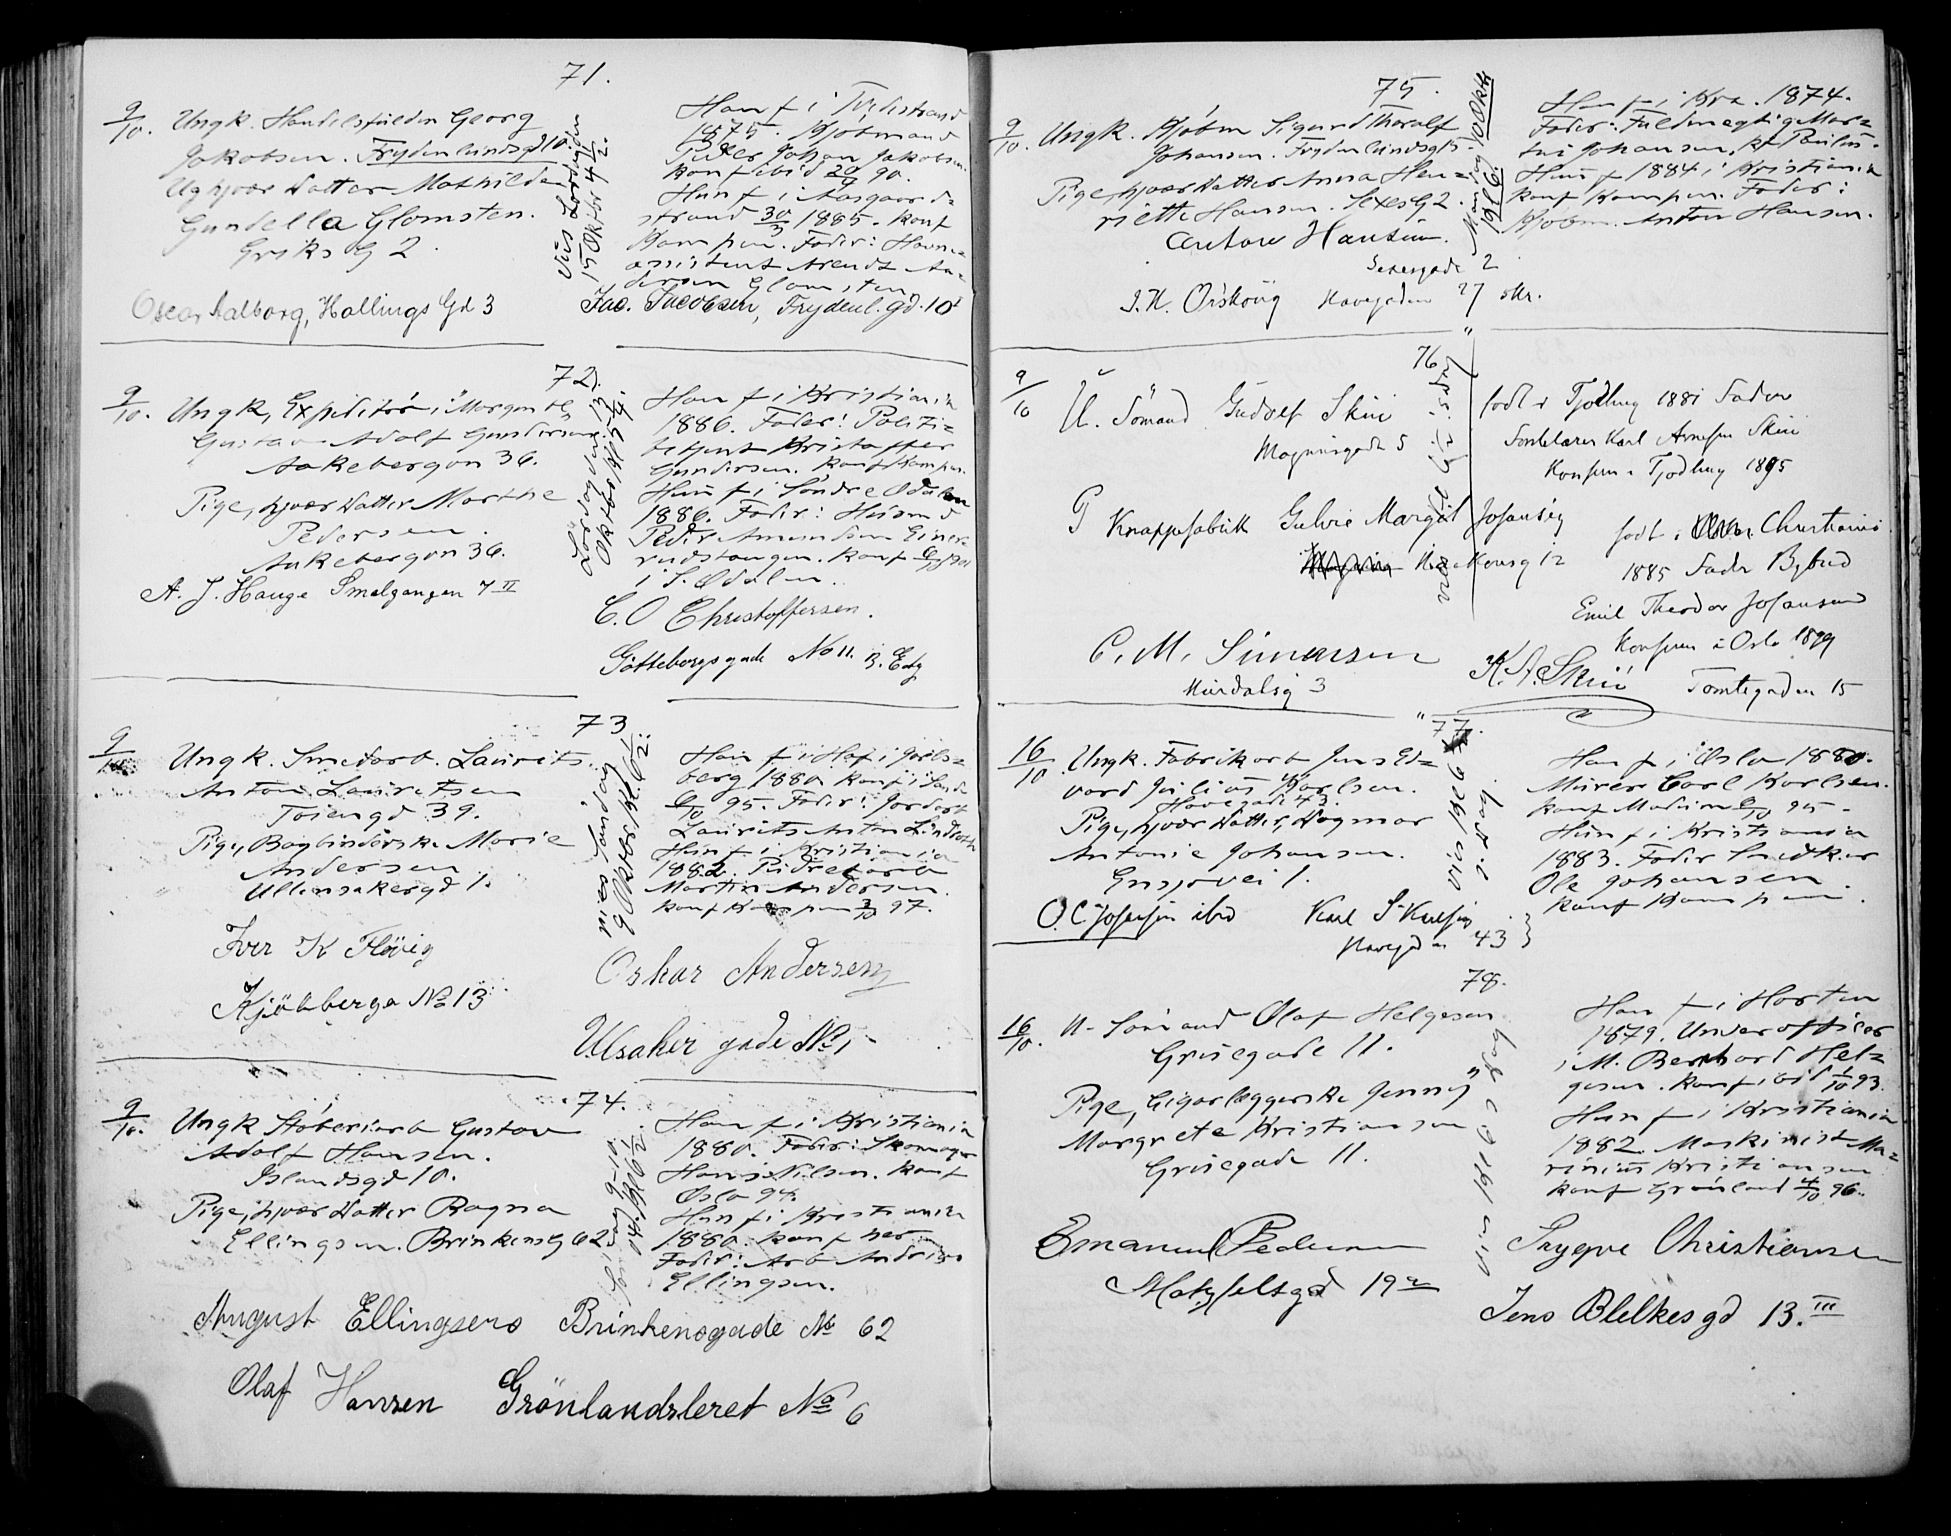 71.
9/10. Ungk. Handelsfuldm Georg
Jakobsen. Frydenlundsgd 10.
Ug hjvær Datter Mathilde
Gundella Glomsten.
Eriks G 2.
Vies Lørdag den
15 Oktbr kl
Han f i Tvedestrand
1875. Kjøbmand
Peder Johan Jakobsen
konf ibid 90.
Hun f i Aasgaard=
strand 30 1885. konf
Kampen. Fader: Havne=
assistent Arendt An=
dersen Glomsten
Oscar Aalborg, Hallings Gd 3
Jac. Jacobsen, Frydenl. gd. 10
72.
9/10. Ungk, Expeditør i Morgenbl
Gustav Adolf Gundersen
Aakebergvn 36.
Pige, hjvær Datter Marthe
Pedersen
Aakebergvn 36.
Lørdag den
Oktbr kl 5
Han f i Kristiania
1886. Fader: Politi=
betjent Kristoffer
Gundersen. konf Kampen.
Hun f i Søndre Odalen
1886. Fader: Husmd
Peder Amundsen Einer=
rudstangen. konf
i S. Odalen.
A. J. Hauge Smalgangen 7 II
C. O Christoffersen.
Gøtteborgsgade No 11. 3. Etg
73
9/10 Ungk. Smedarb. Laurits
Anton Lauritsen
Tøiengd 39.
Pige, Bogbinderske Marie
Andersen
Ullensakergd 1.
vies Søndag
9 Oktober kl. 6 1/2
Han f i Hof i Jarls=
berg 1880 konf i Sande
95. Fader: Jordarb
Laurits Anton
Hun f i Kristiania
1882.
Martin Andersen.
konf Kampen 97.
Iver K Fløvig
Kjølberga No 13
Oskar Andersen
Ulsaker gade No 1
74.
9/10. Ungk Støberiarb Gustav
Adolf Hansen.
Islandsgd 10.
Pige, hjvær Datter Ragna
Ellingsen. Brinkensg 62
Han f i Kristiania
1880. Fader: Skomager
Hans Nilsen. konf
Oslo 94.
Hun f i Kristiania
1880. konf her
Fader: Arb Andreas
Ellingsen.
August Ellingsen Brinkensgade No 62
Olaf Hansen Grönlandsleret No 6
75.
9/10. Ungk. Kjøbm Sigurd Thoralf
Johansen. Frydenlundsgt
Pige, hjvær Datter Anna Hen=
riette Hansen. Sexesg 2.
Mandag 10 Oktb
Han f i Kra. 1874.
Fader: Fuldmegtig Mar=
tin Johansen. kf Paulus.
Hun f 1884 i Kristiania
konf Kampen. Fader:
Kjøbm. Anton Hansen.
Anton Hansen.
Sexesgade 2
J. H. Ørskoug Havegaden 27
76
9/10 U. Sömand Gudolf Skui
Magnusgade 5
født i Tjodling 1881 Fader
Karl Arnesen Skui
Konfirm i Tjodling 1895
P Knappefabrik Gulvie Margit Johansen
12
født i Christiania
1885 Fader Bybud
Emil Theodor Johansen
Konfirm i Oslo 1899
C. M. Simensen
3
K. A. Skui Tomtegaden 15
77.
16/10. Ungk. Fabrikarb Jens Ed=
vard Julius Karlsen.
Havegade 43.
Pige, hjvær Datter, Dagmar
Antonie Johansen.
Ensjøvei 1.
Han f i Oslo 1880.
Murer Carl Karlsen.
konf 95.
Hun f i Kristiania
1883. Fader Snedker
Ole Johansen.
konf Kampen.
O. C Johansen ibid
Karl S Karlsen
Havegaden 43
78.
16/10. U- Sømand Olaf Helgesen
Grüsegade 11.
Pige, Cigarlæggerske Jenny
Margrete Kristiansen
Grüsegade 11.
Han f i Horten
1879. Underofficer
i M. Bernhard Hel=
gesen. konf ibid 1/10 93.
Hun f i Kristiania
1882. Maskinist Ma=
rinius Kristiansen
konf Grønland 4/10 96.
Emanuel Pedersen
Motzfeltsgd 19
Trygve Christiansen
Jens Bjelkes gd 13. III